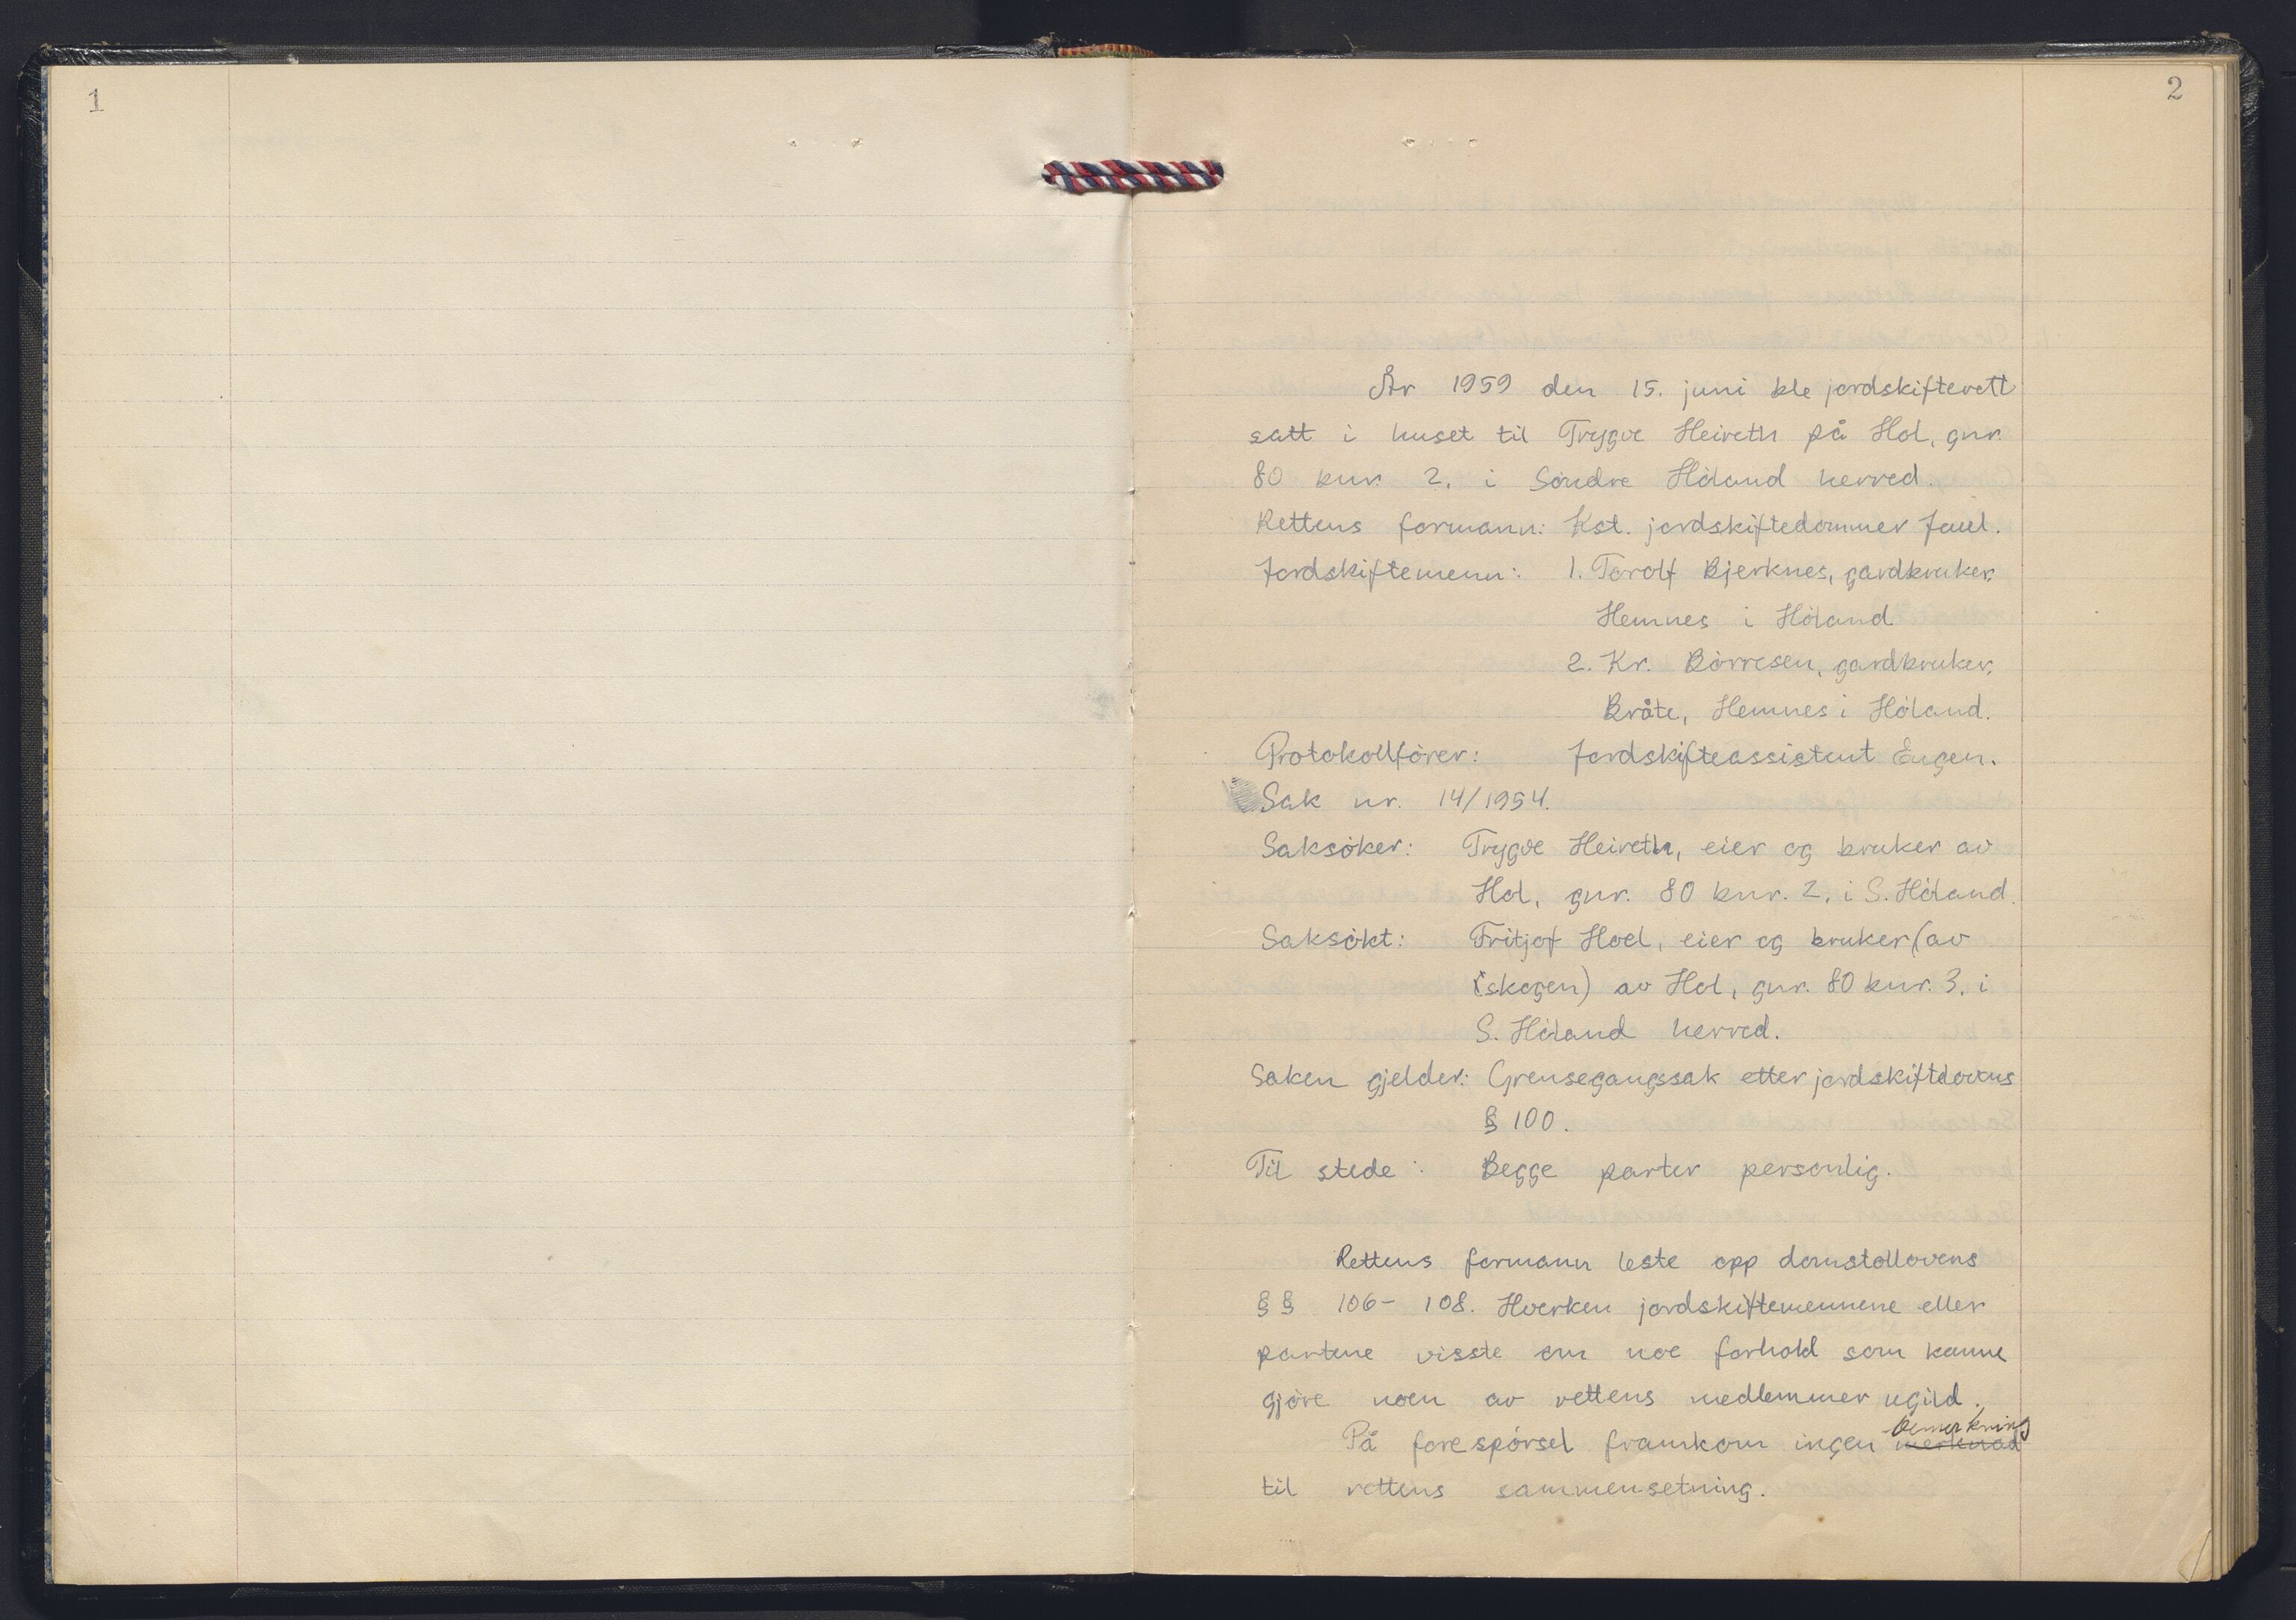 1
2
År 1959 den 15. juni ble jordskifterett
satt i huset til Trygve Heireth på Hol, gnr.
80 bnr. 2, i Söndre Höland herred.
Rettens formann: Kst. jordskiftedommer Juul.
Jordskiftemenn: 1. Torolf Bjerknes, gardbruker,
Hemnes i Höland
2. Kr. Börresen, gardbruker,
Bråte, Hemnes i Höland.
Protokollförer: Jordskifteassistent Engen.
Sak nr. 14/1954.
Saksöker: Trygve Heireth, eier og bruker av
Hol, gnr. 80 bnr. 2, i S. Höland.
Saksökt: Fritjof Hoel, eier og bruker (av
(skogen) av Hol, gnr. 80 bnr. 3, i
S. Höland herred.
Saken gjelder: Grensegangssak etter jordskiftelovens
§ 100.
Til stede: Begge parter personlig.
Rettens formann leste opp domstollovens
§§ 106- 108. Hverken jordskiftemennene eller
partene visste om noe forhold som kunne
gjöre noen av rettens medlemmer ugild.
bemerkning
På forespörsel framkom ingen merknad
til rettens sammensetning.